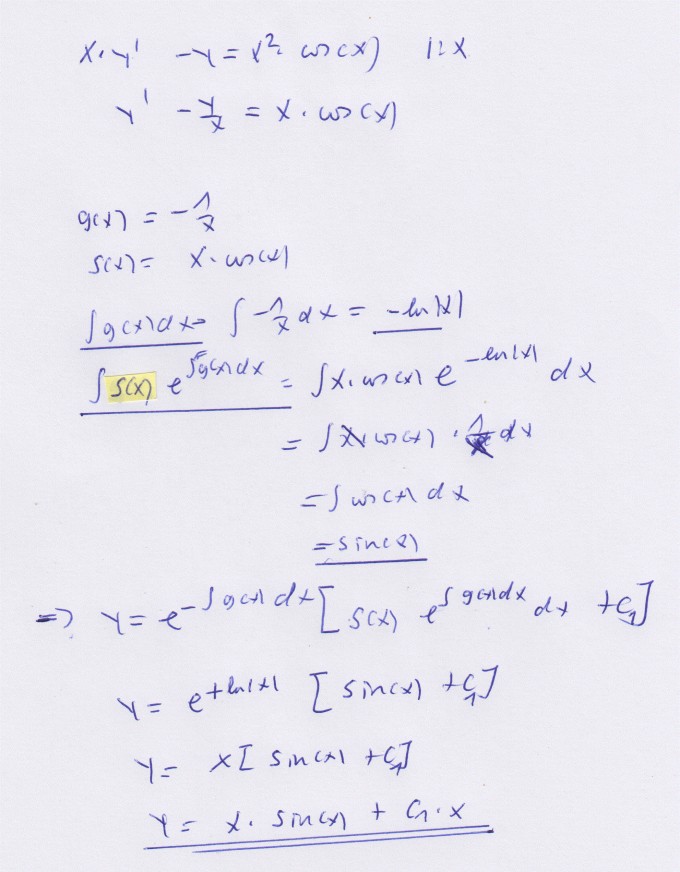 x·y' - y = x² cos(x) |: x
y' - y/x = x · cos(x)
g(x) = - 1/x
s(x) = x · cos(x)
∫g(x)dx = ∫ - 1/x dx = - ln|x|
∫ s(x) e^(∫g(x)dx) = ∫x · cos(x) e^(-ln|x|) dx
= ∫ x cos(x) · 1/x dx
= ∫ cos(x) dx
= sin(x)
=> y = e^(-∫g(x)dx) [ s(x) e^(∫g(x)dx) dx + C₁]
y = e^(+ln|x|) [ sin(x) + C₁]
y = x[ sin(x) + C₁]
y = x · sin(x) + C₁ · x